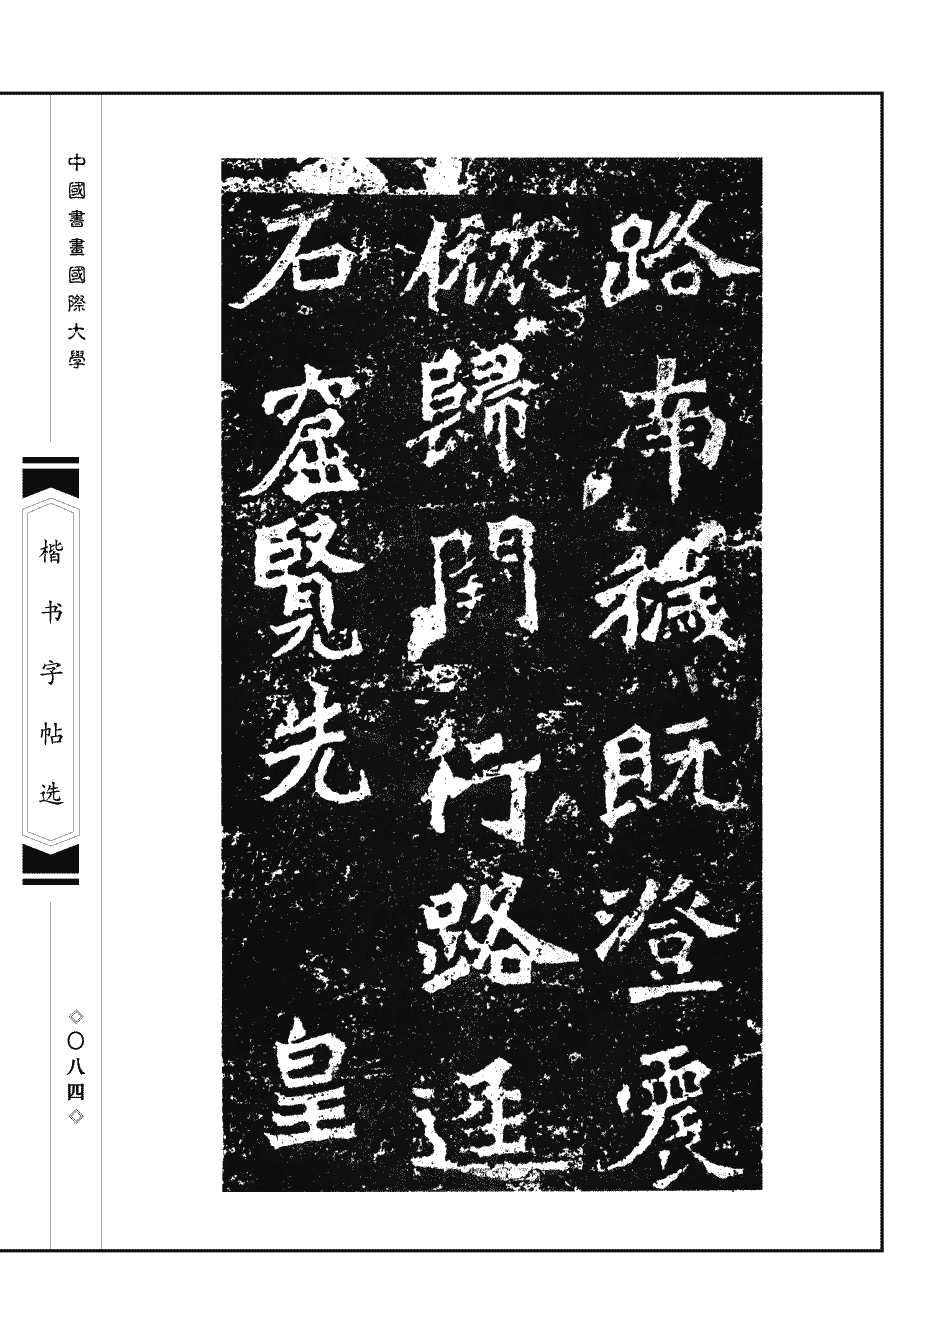 路南穢既澄震
旅歸闕行路逕
石窟覽先皇
中國書畫國際大學
楷书字帖选
〇八四